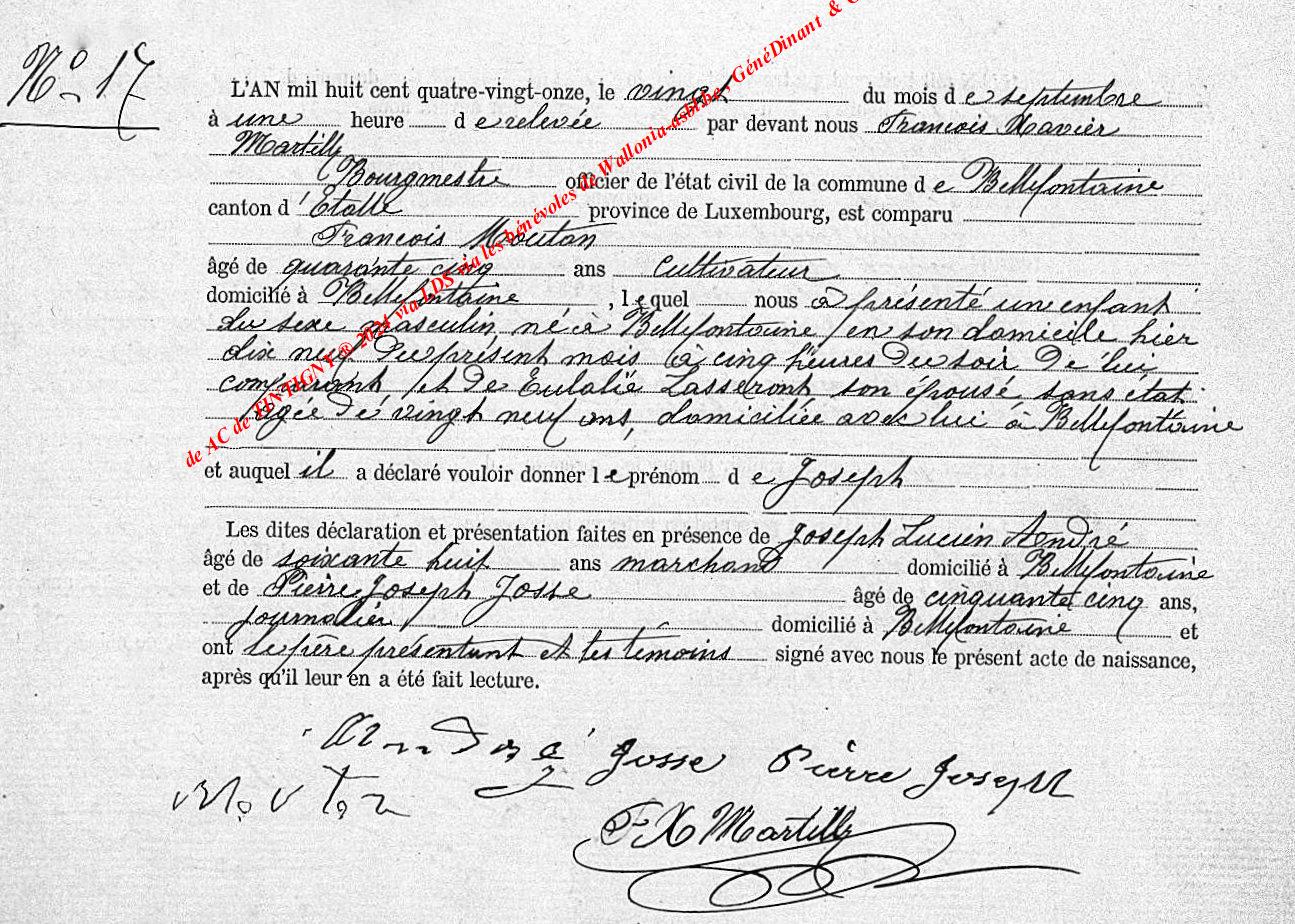 N° 17
L'AN mil huit cent quatre-vingt-onze, le vingt du mois d e septembre
à une heure d e relevée par devant nous François Xavier
Martilly
Bourgmestre officier de l'état civil de la commune d e Bellefontaine
canton d' Etalle province de Luxembourg, est comparu
François Mouton
âgé de quarante cinq ans cultivateur
domicilié à Bellefontaine, l equel nous a présenté un enfant
du sexe masculin, né à Bellefontaine, en son domicile hier
dix neuf du présent mois à cinq heures du soir de lui
comparant, et de Eulalie Lasseront son épouse sans état
âgée de vingt neuf ans, domiciliée avec lui à Bellefontaine
et auquel il a déclaré vouloir donner l e prénom d e Joseph
Les dites déclaration et présentation faites en présence de Joseph Lucien André
âgé de soixante huit ans marchand domicilié à Bellefontaine
et de Pierre Joseph Josse âgé de cinquante cinq ans,
journalier domicilié à Bellefontaine et
ont le père présentant et les témoins signé avec nous le présent acte de naissance,
après qu'il leur en a été fait lecture.
André Josse Pierre Joseph
Mouton
F X Martilly
de AC de TINTIGNY ® 2024 via LDS via les bénévoles de Wallonia-asbl.be, GénéDinant &